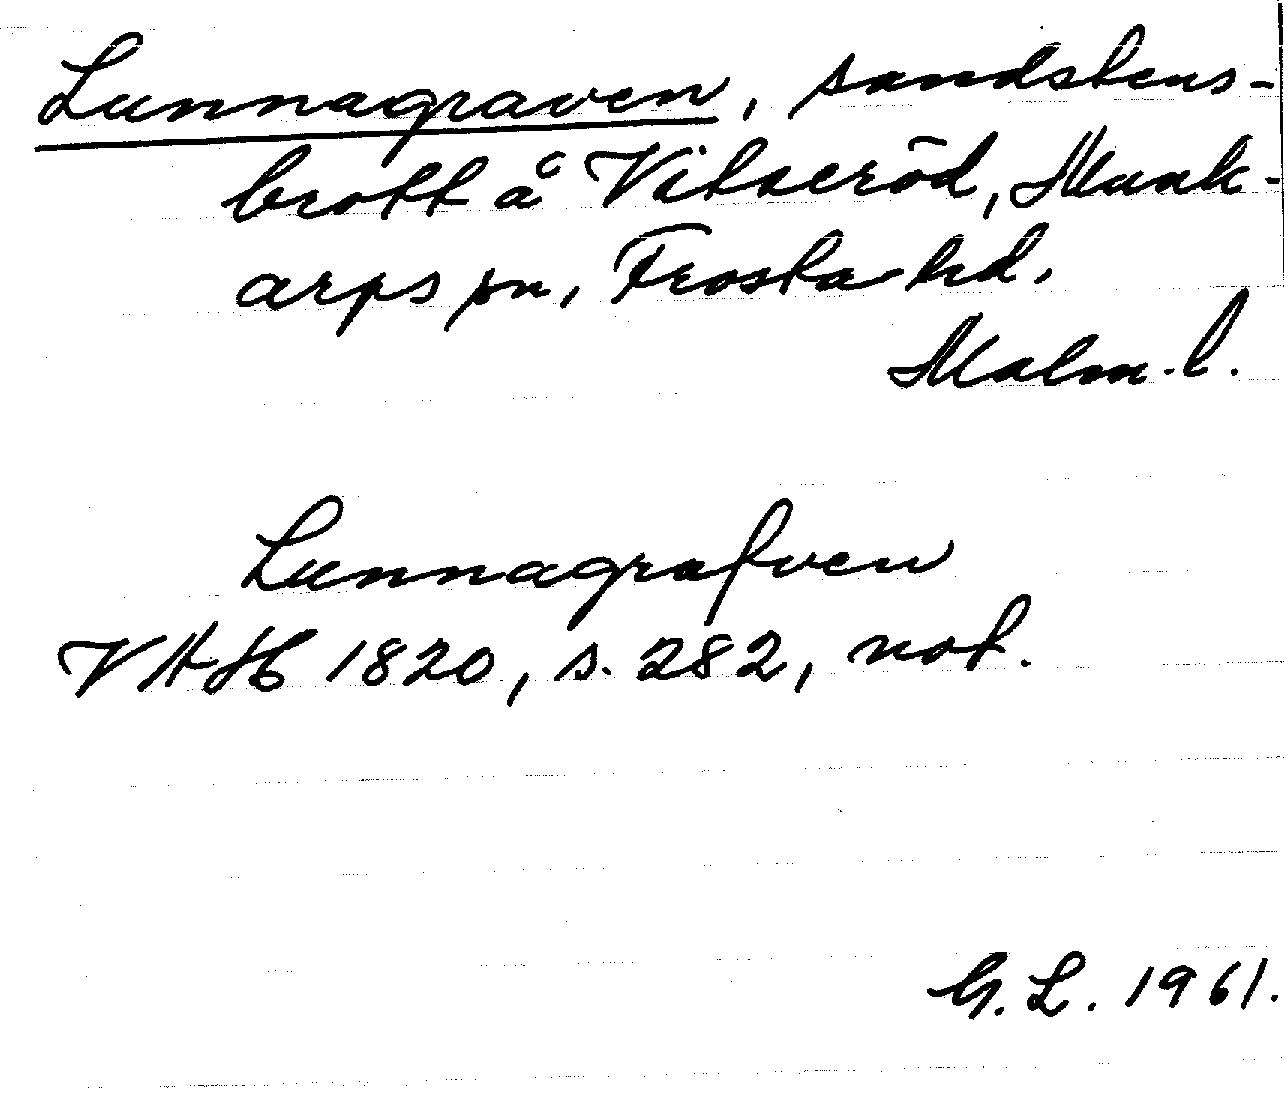 Lunnagraven, sandstens-
brott å Vitseröd, Munk-
arps sn, Frosta hd.
Malm. l.
Lunnagrafven
VAH 1820, s. 282, not.
G. L. 1961.